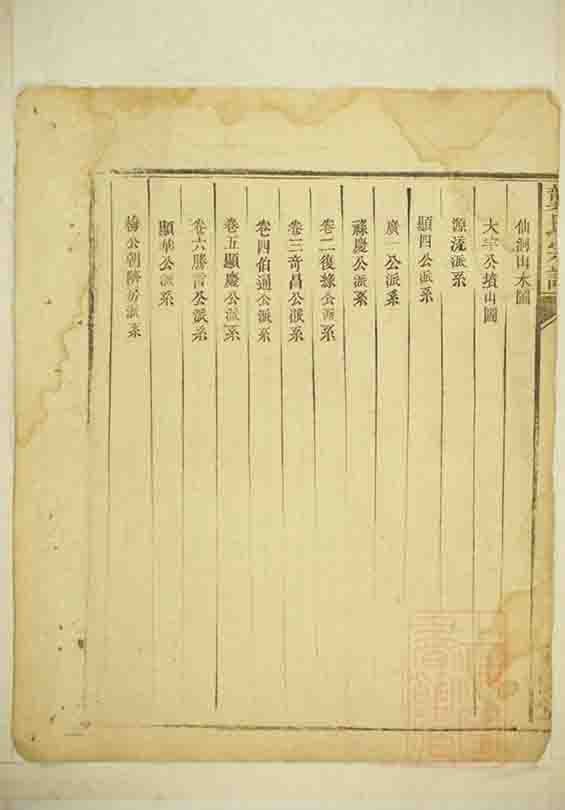 仙洞山水圖
大宗公墳山圖
源流派系
顯四公派系
廣一公派系
藤慶公派系
卷二復緣公派系
卷三奇昌公派系
卷四伯通公派系
卷五顯慶公派系
卷六勝言公派系
顯華公派系
梅公朝隣房派系